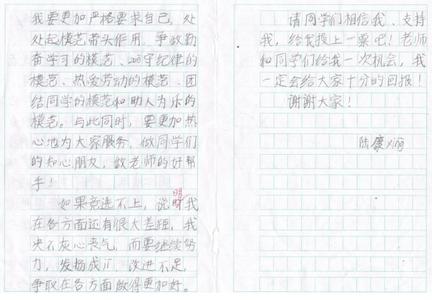 我要更加严格要求自己,处
处起模范带头作用,争做勤
奋学习的模范、遵守纪律的
模范、热爱劳动的模范、团
结同学的模范和助人为乐的
模范。与此同时,要更加热
心地为大家服务,做同学们
的知心朋友,做老师的好帮
手!
如果竞选不上,说明我
在各方面还有很大差距,我
决不灰心丧气,而要继续努
力,发扬成,改进不足,
争取在各方面做得更加好。
请同学们相信我、支持
我,给我投上一票吧!老师
和同学们给我一次机会,我
一定会给大家十分的回报!
谢谢大家!
陆康